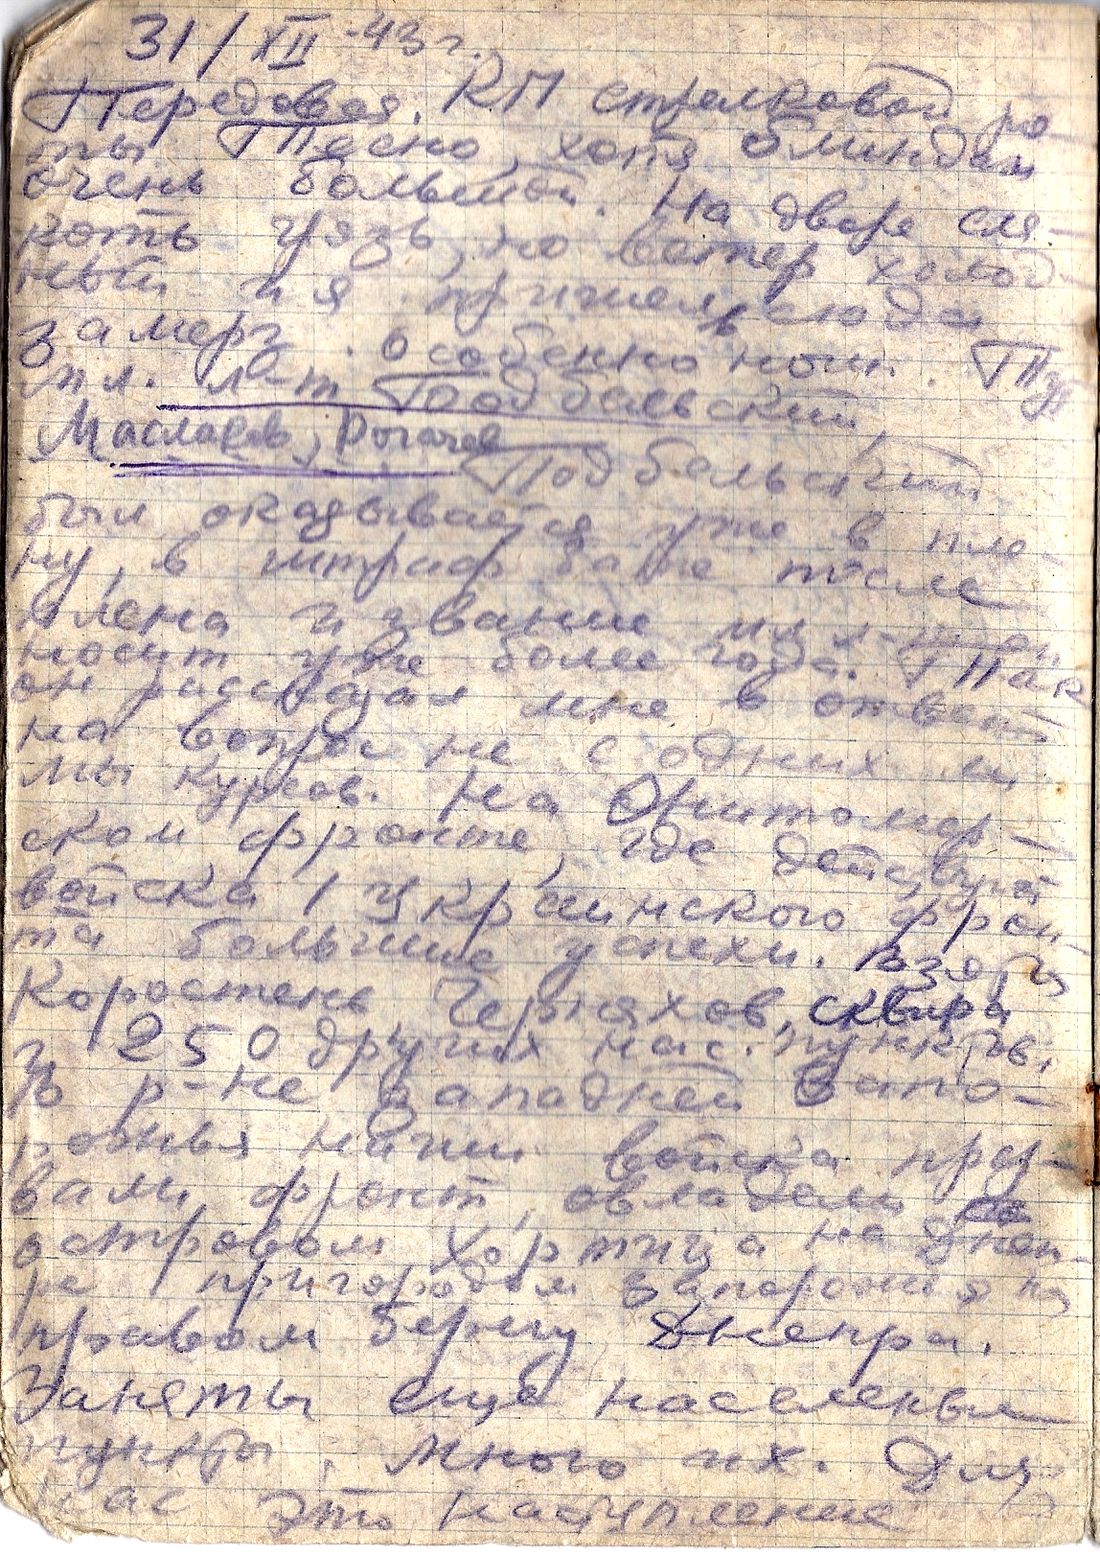 31/XII-43 г.
Передовая. КП стрелковой ро-
ты. Тесно, хотя блиндаж
очень большой. На дворе сля-
коть грязь, но ветер холод-
ный и я пришел сюда
замерз. Особенно ноги. Тут
мл. л-т Подбельский,
Маслаков, Рогачев
Подбельский
был оказывается уже в пле-
ну, в штрафбате после
плена и звание мл. л-та
носит уже более года. Так
он рассказал мне в ответ
на вопрос не с одних ли
мы курсов. На Житомир-
ском фронте, где действуют
войска 1 Украинского фрон-
та большие успехи. Взяты
Коростень Черняхов, Сквира
и 250 других нас. пунктов.
В р-не западней Запо-
рожья наши войска прор-
вали фронт, овладели
островом Хортица на Днеп-
ре пригородом Запорожья на
правом берегу Днепра.
Заняты еще населенные
пункты, много их. Для
нас это наступление